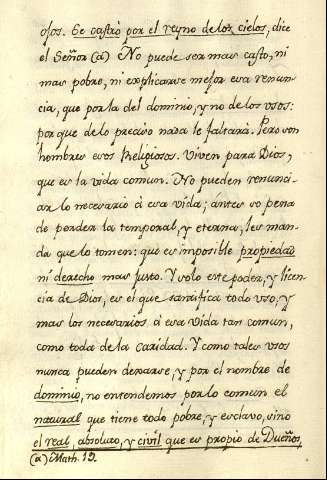 osos. Se castró por el reyno de los cielos, dice
el Señor (a) No puede ser mas casto, ni
mas pobre, ni explicarse mejor esa renun-
cia, que por la del dominio, y no de los usos:
por que de lo preciso nada le faltará. Pero son
hombres esos Religiosos. Viven para Dios,
que es la vida comun. No pueden renunci-
ar lo necesario à esa vida; antes so pena
de perder la temporal, y eterna, les man-
da que lo tomen: que es imposible propiedad
ni derecho mas justo. Y solo este poder, y licen-
cia de Dios, es el que santifica todo uso, y
mas los necesarios à esa vida tan comun,
como toda de la caridad. Y como tales usos
nunca pueden dexarse, y por el nombre de
dominio, no entendemos por lo comun el
natural que tiene todo pobre, y esclavo, sino
el real, absoluto, y civil que es propio de Dueños,
(a) Math. 19.